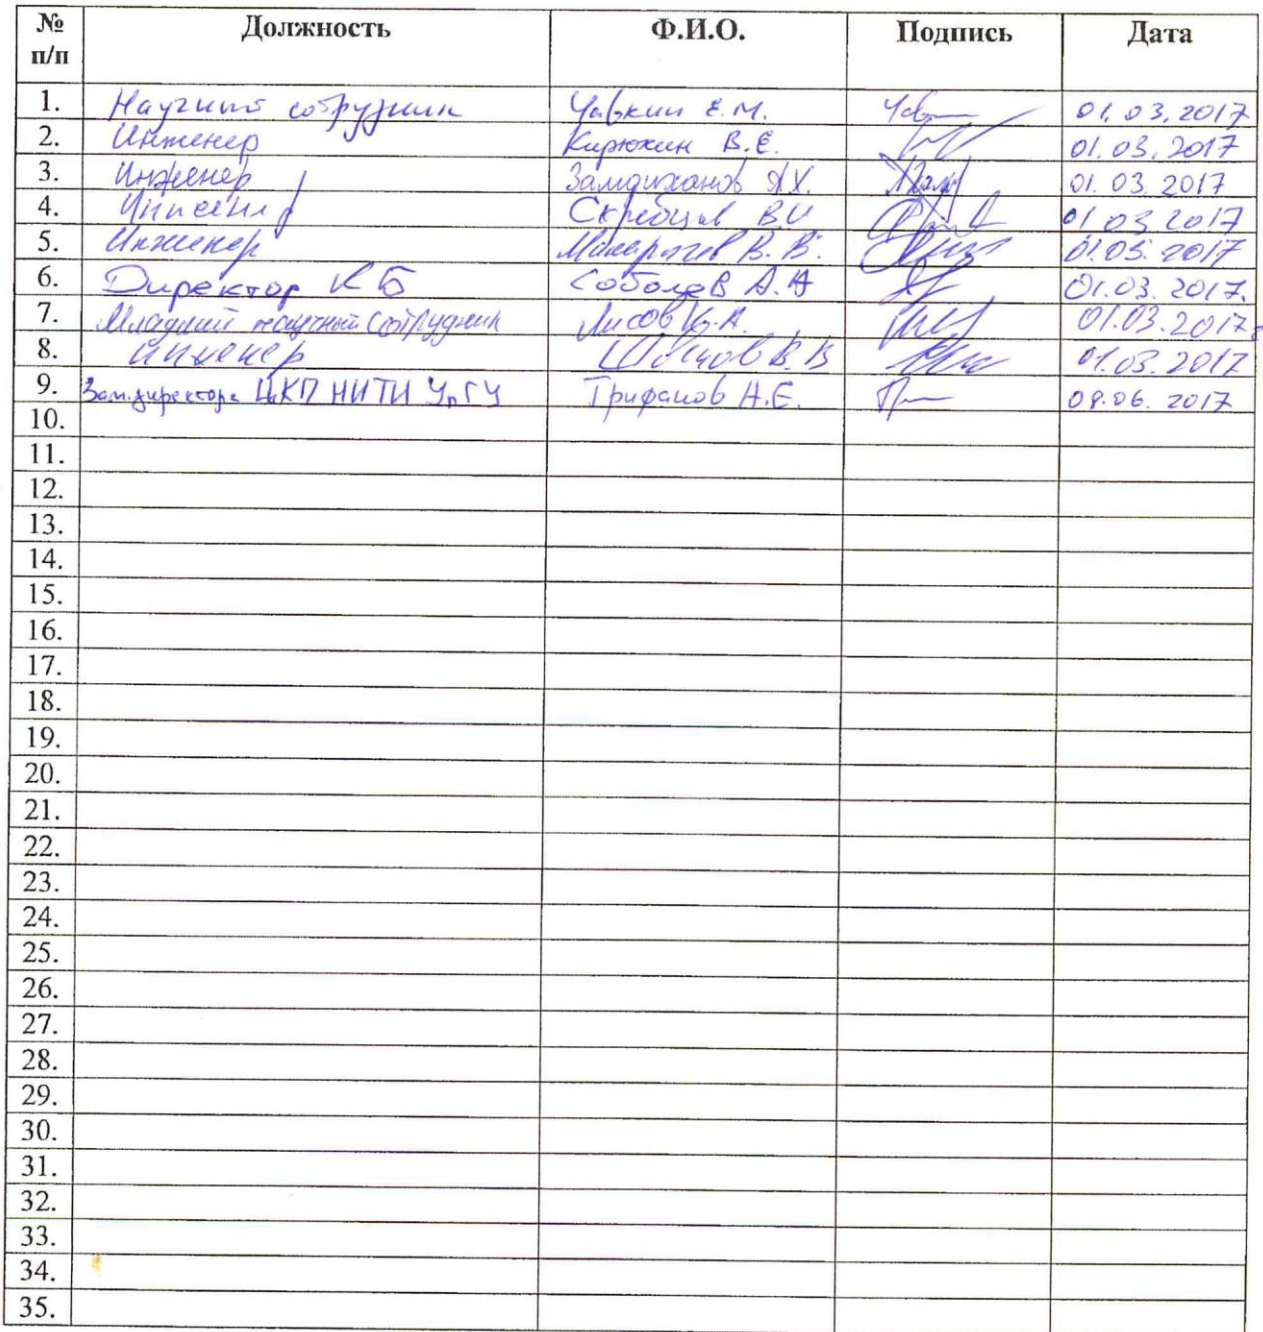 № п/п Должность Ф.И.О. Подпись Дата
1. Научный сотрудник Чавкин Е.М. 01.03.2017
2. Инженер Кирюхин В.Е. 01.03.2017
3. Инженер 01.03.2017
4. Инженер Скребцов В.И 01.03.2017
5. Инженер В.В. 01.03.2017
6. Директор КБ Соболев А.А 01.03.2017.
7. Младший научный сотрудник Лисов 01.03.2017г
8. инженер В.В 01.03.2017
9. Зам.директора ЦКП НИТИ УлГУ Трифанов А.Е. 09.06.2017
10.
11.
12.
13.
14.
15.
16.
17.
18.
19.
20.
21.
22.
23.
24.
25.
26.
27.
28.
29.
30.
31.
32.
33.
34.
35.